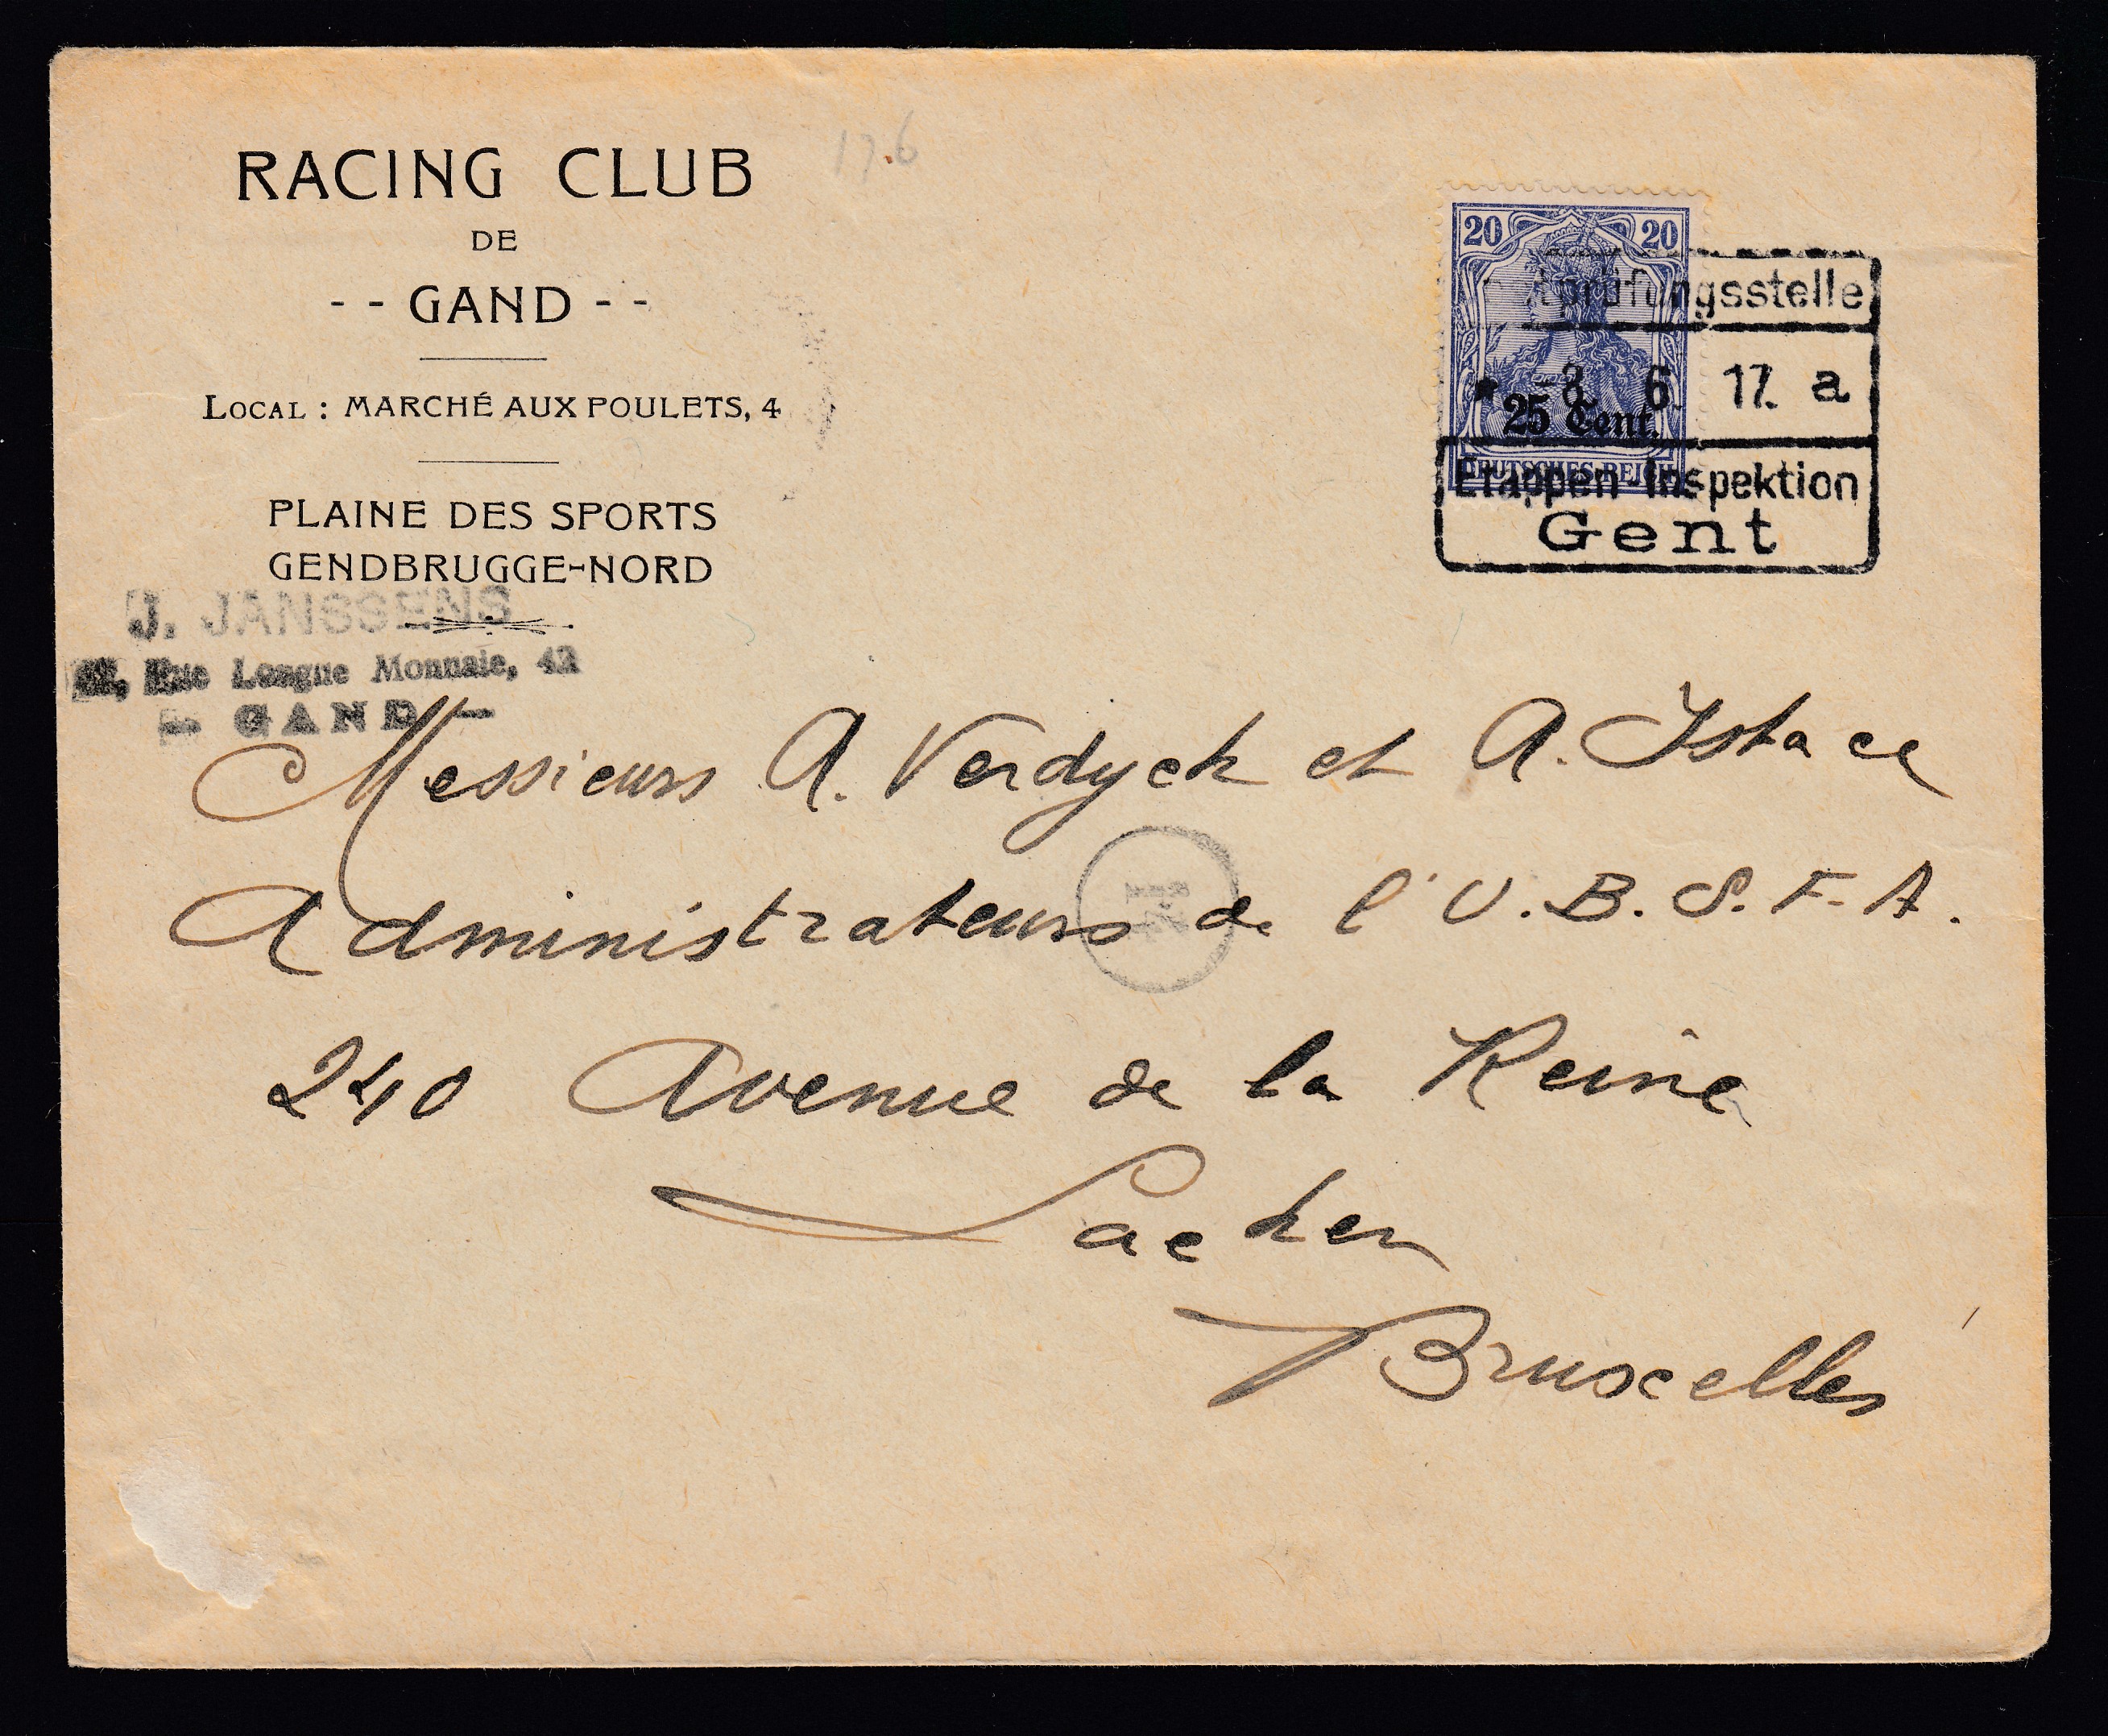 RACING CLUB
DE
- - GAND - -
LOCAL : MARCHÉ AUX POULETS, 4
PLAINE DES SPORTS
GENDBRUGGE-NORD
J. JANSSENS
42, Rue Longue Monnaie, 42
- GAND -
17.6
20 20
25 Cent.
DEUTSCHES REICH
prüfungsstelle
* -8. 6. 17. a
Etappen-Inspektion
Gent
Messieurs A. Verdyck et A. Istace
Administrateurs de l'U.B.S.F.A.
240 Avenue de la Reine
Laeken
Bruxelles